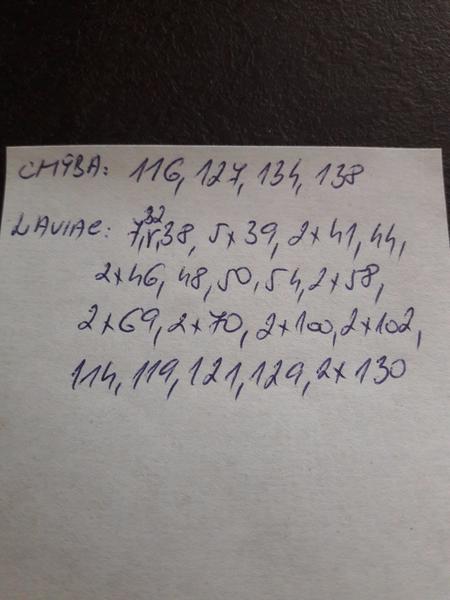 CHÝBA: 116, 127, 134, 138
NAVIAC: 7, 8, 32, 38, 5x39, 2x41, 44,
2x46, 48, 50, 54, 2x58,
2x69, 2x70, 2x100, 2x102,
114, 119, 121, 129, 2x130